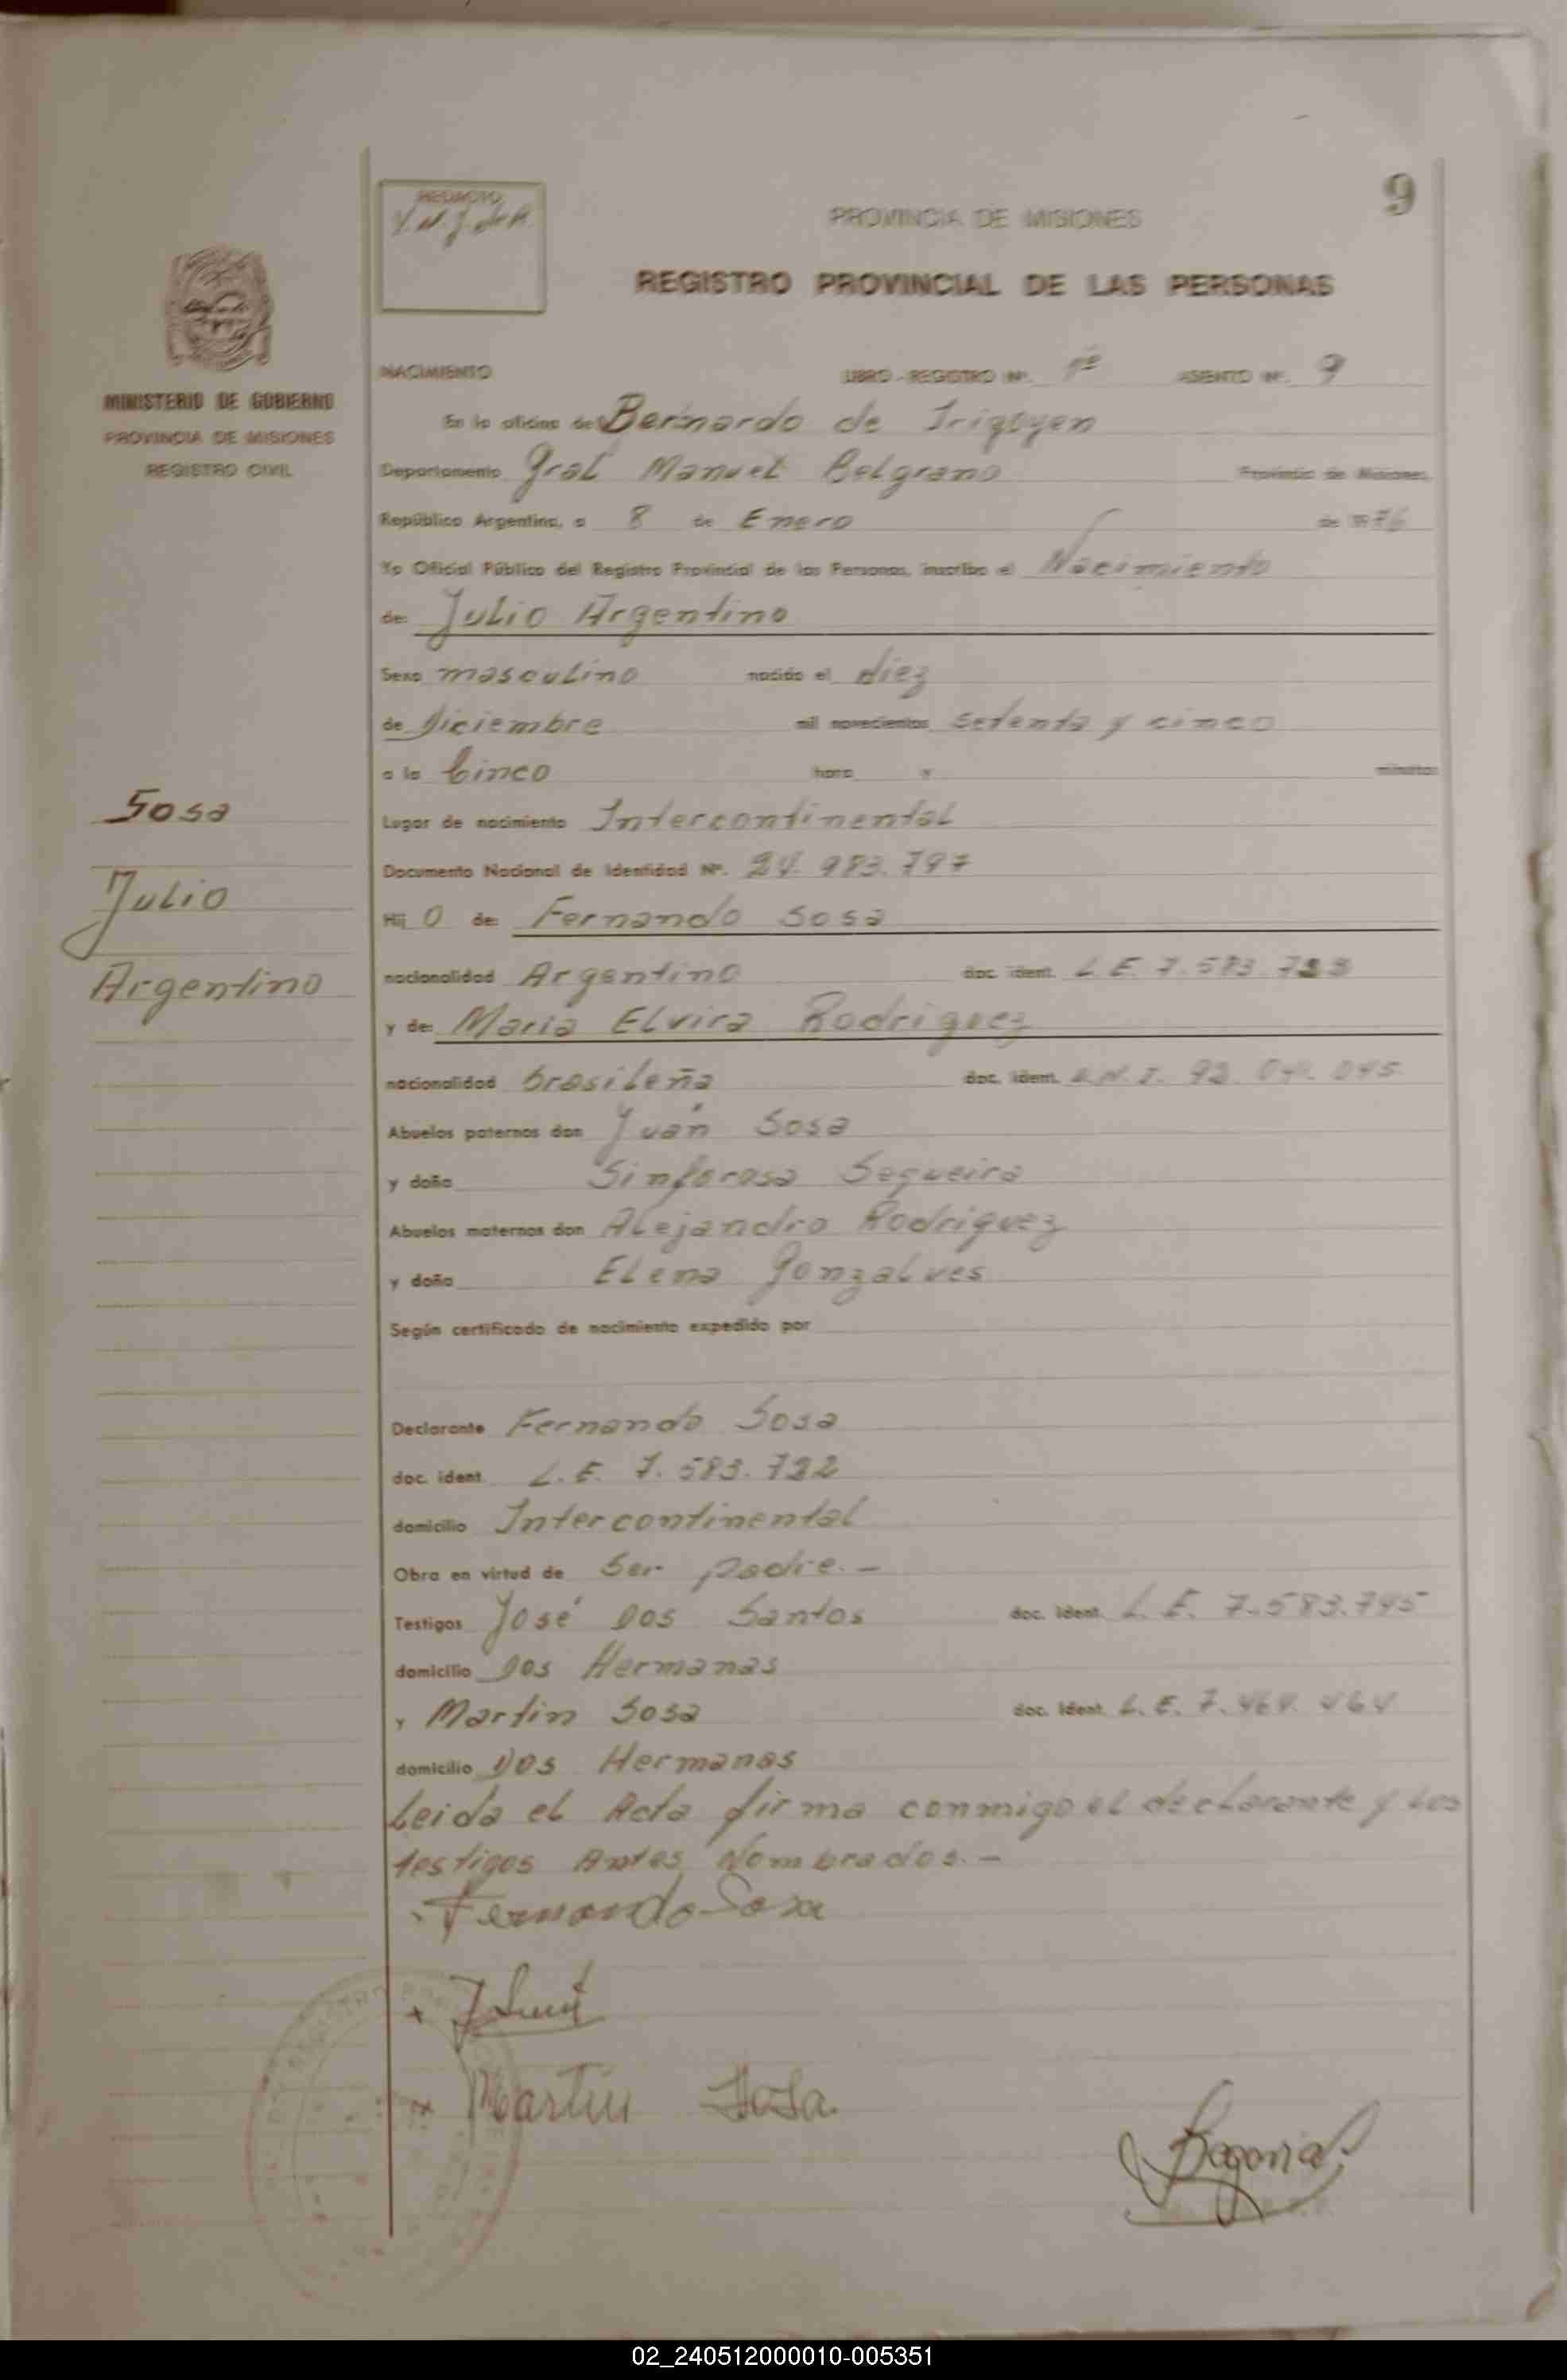 9
REDACTO
PROVINCIA DE MISIONES
REGISTRO PROVINCIAL DE LAS PERSONAS
MINISTERIO DE GOBIERNO
PROVINCIA DE MISIONES
REGISTRO CIVIL
NACIMIENTO LIBRO - REGISTRO Nº. 1º ASIENTO Nº. 9
En la oficina de Bernardo de Irigoyen
Departamento Gral Manuel Belgrano Provincia de Misiones,
República Argentina, a 8 de Enero de 1976
Yo Oficial Público del Registro Provincial de las Personas, inscribo el Nacimiento
de: Julio Argentino
Sexo masculino nacido el diez
de Diciembre mil novecientos setenta y cinco
a la Cinco hora y minutos
Sosa
Lugar de nacimiento Intercontinental
Documento Nacional de Identidad Nº. 24.983.797
Julio
Hij o de: Fernando Sosa
Argentino
nacionalidad Argentino doc. ident. L.E. 7.583.
y de: Maria Elvira Rodriguez
nacionalidad brasileña doc. ident. D.N.I. 92.
Abuelos paternos don Juán Sosa
y doña Sinforosa Sequeira
Abuelos maternos don Alejandro Rodriguez
y doña Elena Gonzalves
Según certificado de nacimiento expedido por
Declarante Fernando Sosa
doc. ident. L.E. 7.583.722
domicilio Intercontinental
Obra en virtud de Ser padre.-
Testigos José Dos Santos doc. ident. L.E. 7.583.745
domicilio Dos Hermanas
y Martin Sosa doc. ident. L.E. 7.464.464
domicilio Dos Hermanas
Leida el Acta firma conmigo el declarante y los
testigos Antes Nombrados.-
Fernando Sosa
Martin Sosa.
02_240512000010-005351